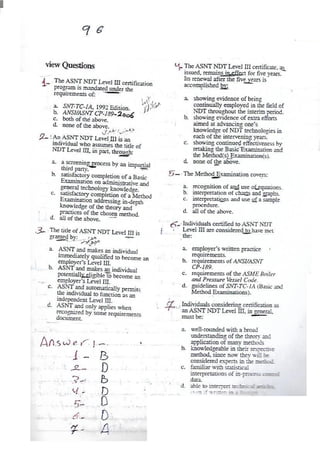 96
view Questions
1- The ASNT NDT Level III certification
program is mandated under the
requirements of:
a. SNT-TC-1A, 1992 Edition.
b. ANSI/ASNT CP-189-2006
c. both of the above.
d. none of the above.
2- :An ASNT NDT Level III is an
individual who assumes the title of
NDT Level III, in part, through:
a. a screening process by an impartial
third party.
b. satisfactory completion of a Basic
Examination on administrative and
general technology knowledge.
c. satisfactory completion of a Method
Examination addressing in-depth
knowledge of the theory and
practices of the chosen method.
d. all of the above.
3- The title of ASNT NDT Level III is
granted by:
a. ASNT and makes an individual
immediately qualified to become an
employer's Level III.
b. ASNT and makes an individual
potentially eligible to become an
employer's Level III.
c. ASNT and automatically permits
the individual to function as an
independent Level III.
d. ASNT and only applies when
recognized by some requirements
document.
Answer :-
1- B
2- D
3- B
4- D
5- D
6- D
7- A
4- The ASNT NDT Level III certificate, as
issued, remains in effect for five years.
Its renewal after the five years is
accomplished by:
a. showing evidence of being
continually employed in the field of
NDT throughout the interim period.
b. showing evidence of extra efforts
aimed at advancing one's
knowledge of NDT technologies in
each of the intervening years.
c. showing continued effectiveness by
retaking the Basic Examination and
the Method(s) Examination(s).
d. none of the above.
5- The Method Examination covers:
a. recognition of and use of equations.
b. interpretation of charts and graphs.
c. interpretation and use of a sample
procedure.
d. all of the above.
6- Individuals certified to ASNT NDT
Level III are considered to have met
the:
a. employer's written practice
requirements.
b. requirements of ANSI/ASNT
CP-189.
c. requirements of the ASME Boiler
and Pressure Vessel Code.
d. guidelines of SNT-TC-1A (Basic and
Method Examinations).
7- Individuals considering certification as
an ASNT NDT Level III, in general,
must be:
a. well-rounded with a broad
understanding of the theory and
application of many methods
b. knowledgeable in their respective
method, since now they will be
considered experts in the method.
c. familiar with statistical
interpretations of in-process control
data.
d. able to interpret technical articles,